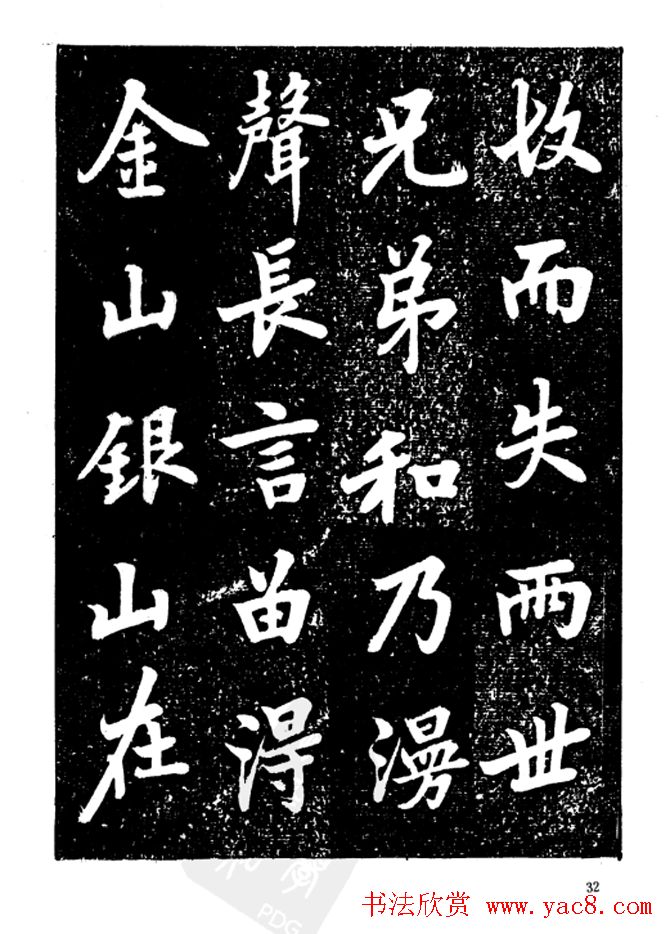 故而失兩世
兄弟和乃
聲長言畄淂
金山銀山在
32
书法欣赏 www.yac8.com
PDG